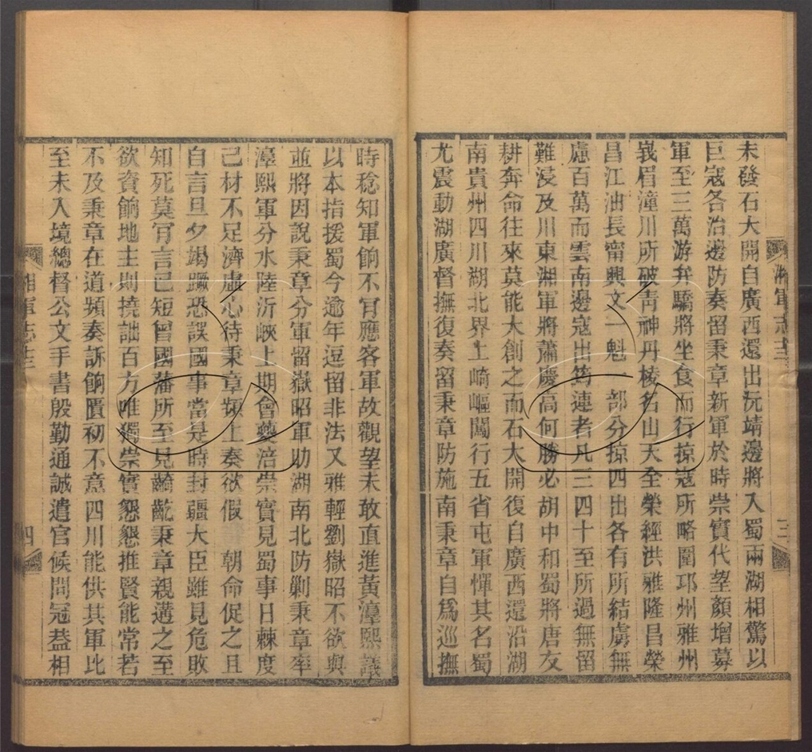 未發石大開自廣西還出沅靖邊將入蜀兩湖相驚以
巨寇各治邊防奏留秉章新軍於時崇實代望顏增募
軍至三萬游弁驕將坐食而行掠寇所略圍邛州雅州
峩眉潼川所破靑神丹棱名山天全榮經洪雅隆昌榮
昌江油長甯興文一魁一部分掠四出各有所結虜無
慮百萬而雲南邊寇出筠連者凡三四十至所過無留
難浸及川東湘軍將蕭慶高何勝必胡中和蜀將唐友
耕奔命往來莫能大創之而石大開復自廣西還沿湖
南貴州四川湖北界上崎嶇闖行五省屯軍憚其名蜀
尤震動湖廣督撫復奏留秉章防施南秉章自爲巡撫
湘軍志三
三
時稔知軍餉不肎應客軍故觀望未敢直進黃漳熙議
以本指援蜀今逾年逗留非法又雅輕劉嶽昭不欲與
並將因說秉章分軍留嶽昭軍助湖南北防剿秉章率
漳熙軍分水陸沂峽上期會夔涪崇實見蜀事日棘度
己材不足濟虛心待秉章頻上奏欲假 朝命促之且
自言旦夕竭蹶恐誤國事當是時封疆大臣雖見危敗
知死莫肎言己短曾國藩所至見齮齕秉章親遘之至
欲資餉地主則撓詘百方唯獨崇實懇懇推賢能常若
不及秉章在道頻奏訴餉匱初不意四川能供其軍比
至未入境總督公文手書殷勤通誠遣官候問冠葢相
湘軍志三
四